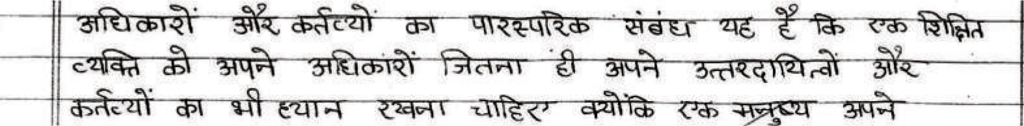 अधिकारों और कर्तव्यों का पारस्परिक संबंध यह है कि एक शिक्षित
व्यक्ति को अपने अधिकारों जितना ही अपने उत्तरदायित्वों और
कर्तव्यों का भी ध्यान रखना चाहिए क्योंकि एक मनुष्य अपने